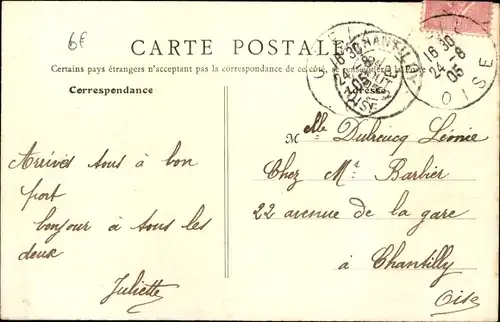 6E
CARTE POSTALE
Certains pays étrangers n'acceptant pas la correspondance de ce côté, se à la Poste
Correspondance
Adresse
CREIL
16 30
24 -8
05
OISE
CHANTILLY
OISE
16 30
24 -8
05
OISE
Melle Dubrucq Léonie
Chez Mr Barbier
22 avenue de la gare
à Chantilly
Oise
Arrivés tous à bon
port
bonjour à tous les
deux
Juliette